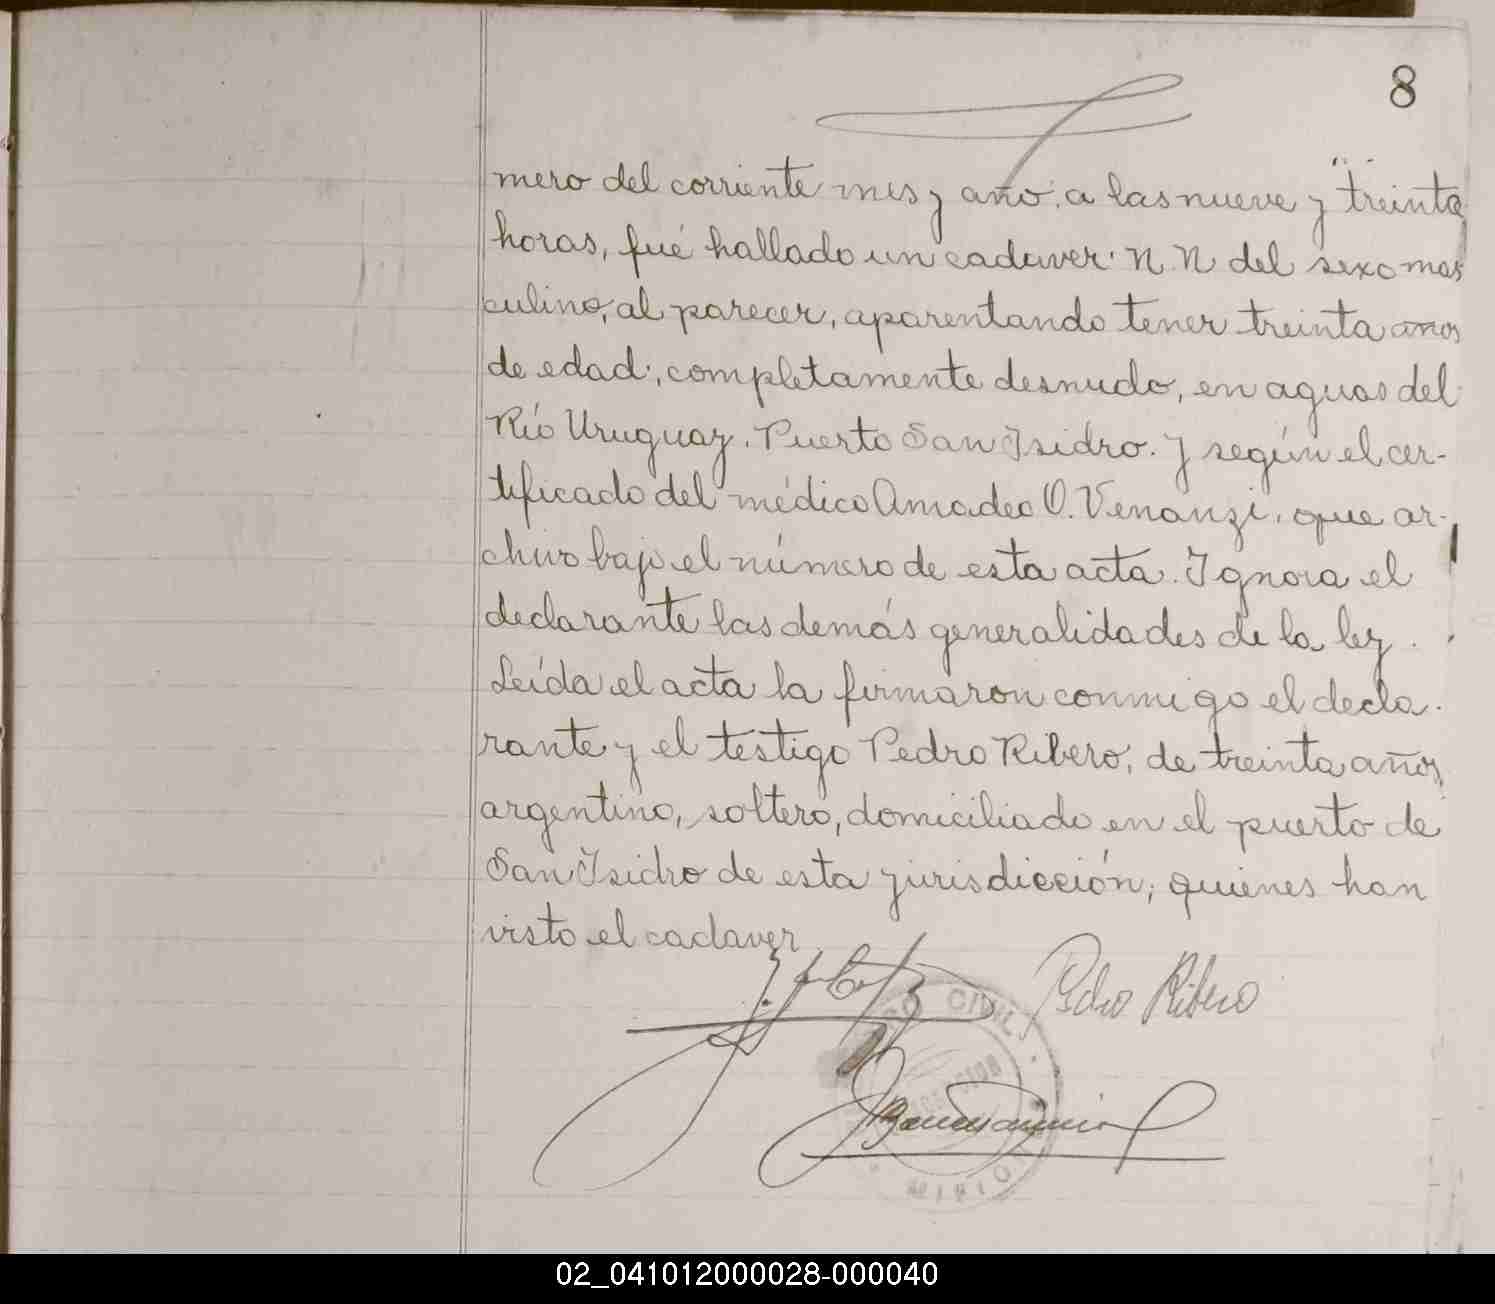 8
mero del corriente mes y año, a las nueve y treinta
horas, fué hallado un cadaver N.N del sexo mas
culino, al parecer, aparentando tener treinta anos
de edad, completamente desnudo, en aguas del
Río Uruguay. Puerto San Isidro. Y según el cer-
tificado del médico Amadeo O. Venanzi, que ar-
chivo bajo el número de esta acta. Ignora el
declarante las demás generalidades de la ley.
Leída el acta la firmaron conmigo el decla.
rante y el testigo Pedro Ribero, de treinta años,
argentino, soltero, domiciliado en el puerto de
San Isidro de esta jurisdicción, quienes han
visto el cadaver
Pedro Ribero
CIVIL
02_041012000028-000040